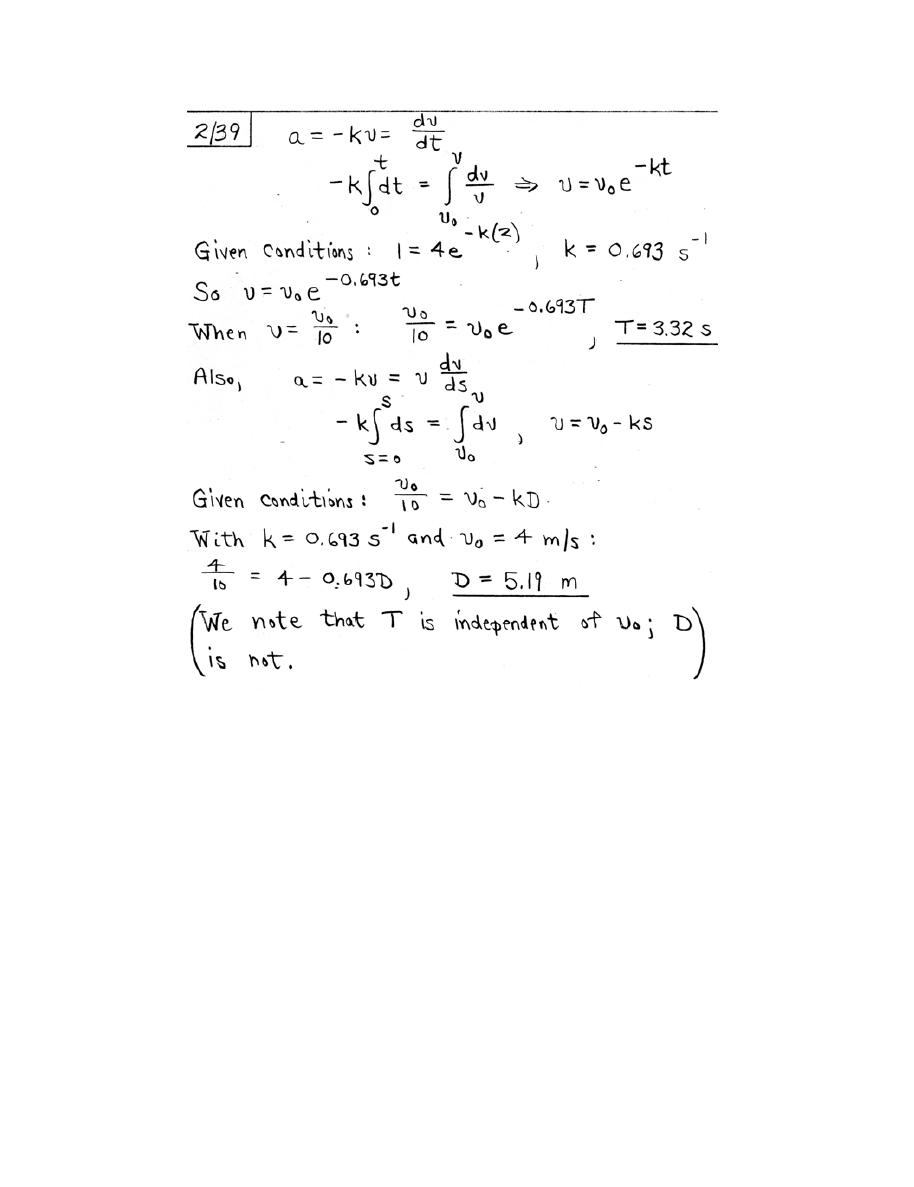 2/39 a = -kv = dv/dt
-k∫₀ᵗ dt = ∫_{v₀}^{v} dv/v ⇒ v = v₀e^{-kt}
Given conditions : 1 = 4e^{-k(2)}, k = 0.693 s⁻¹
So v = v₀e^{-0.693t}
When v = v₀/10 : v₀/10 = v₀e^{-0.693T}, T = 3.32 s
Also, a = -kv = v dv/ds
-k∫_{s=0}^{s} ds = ∫_{v₀}^{v} dv, v = v₀ - ks
Given conditions : v₀/10 = v₀ - kD.
With k = 0.693 s⁻¹ and v₀ = 4 m/s :
4/10 = 4 - 0.693D, D = 5.19 m
(We note that T is independent of v₀; D
is not.)